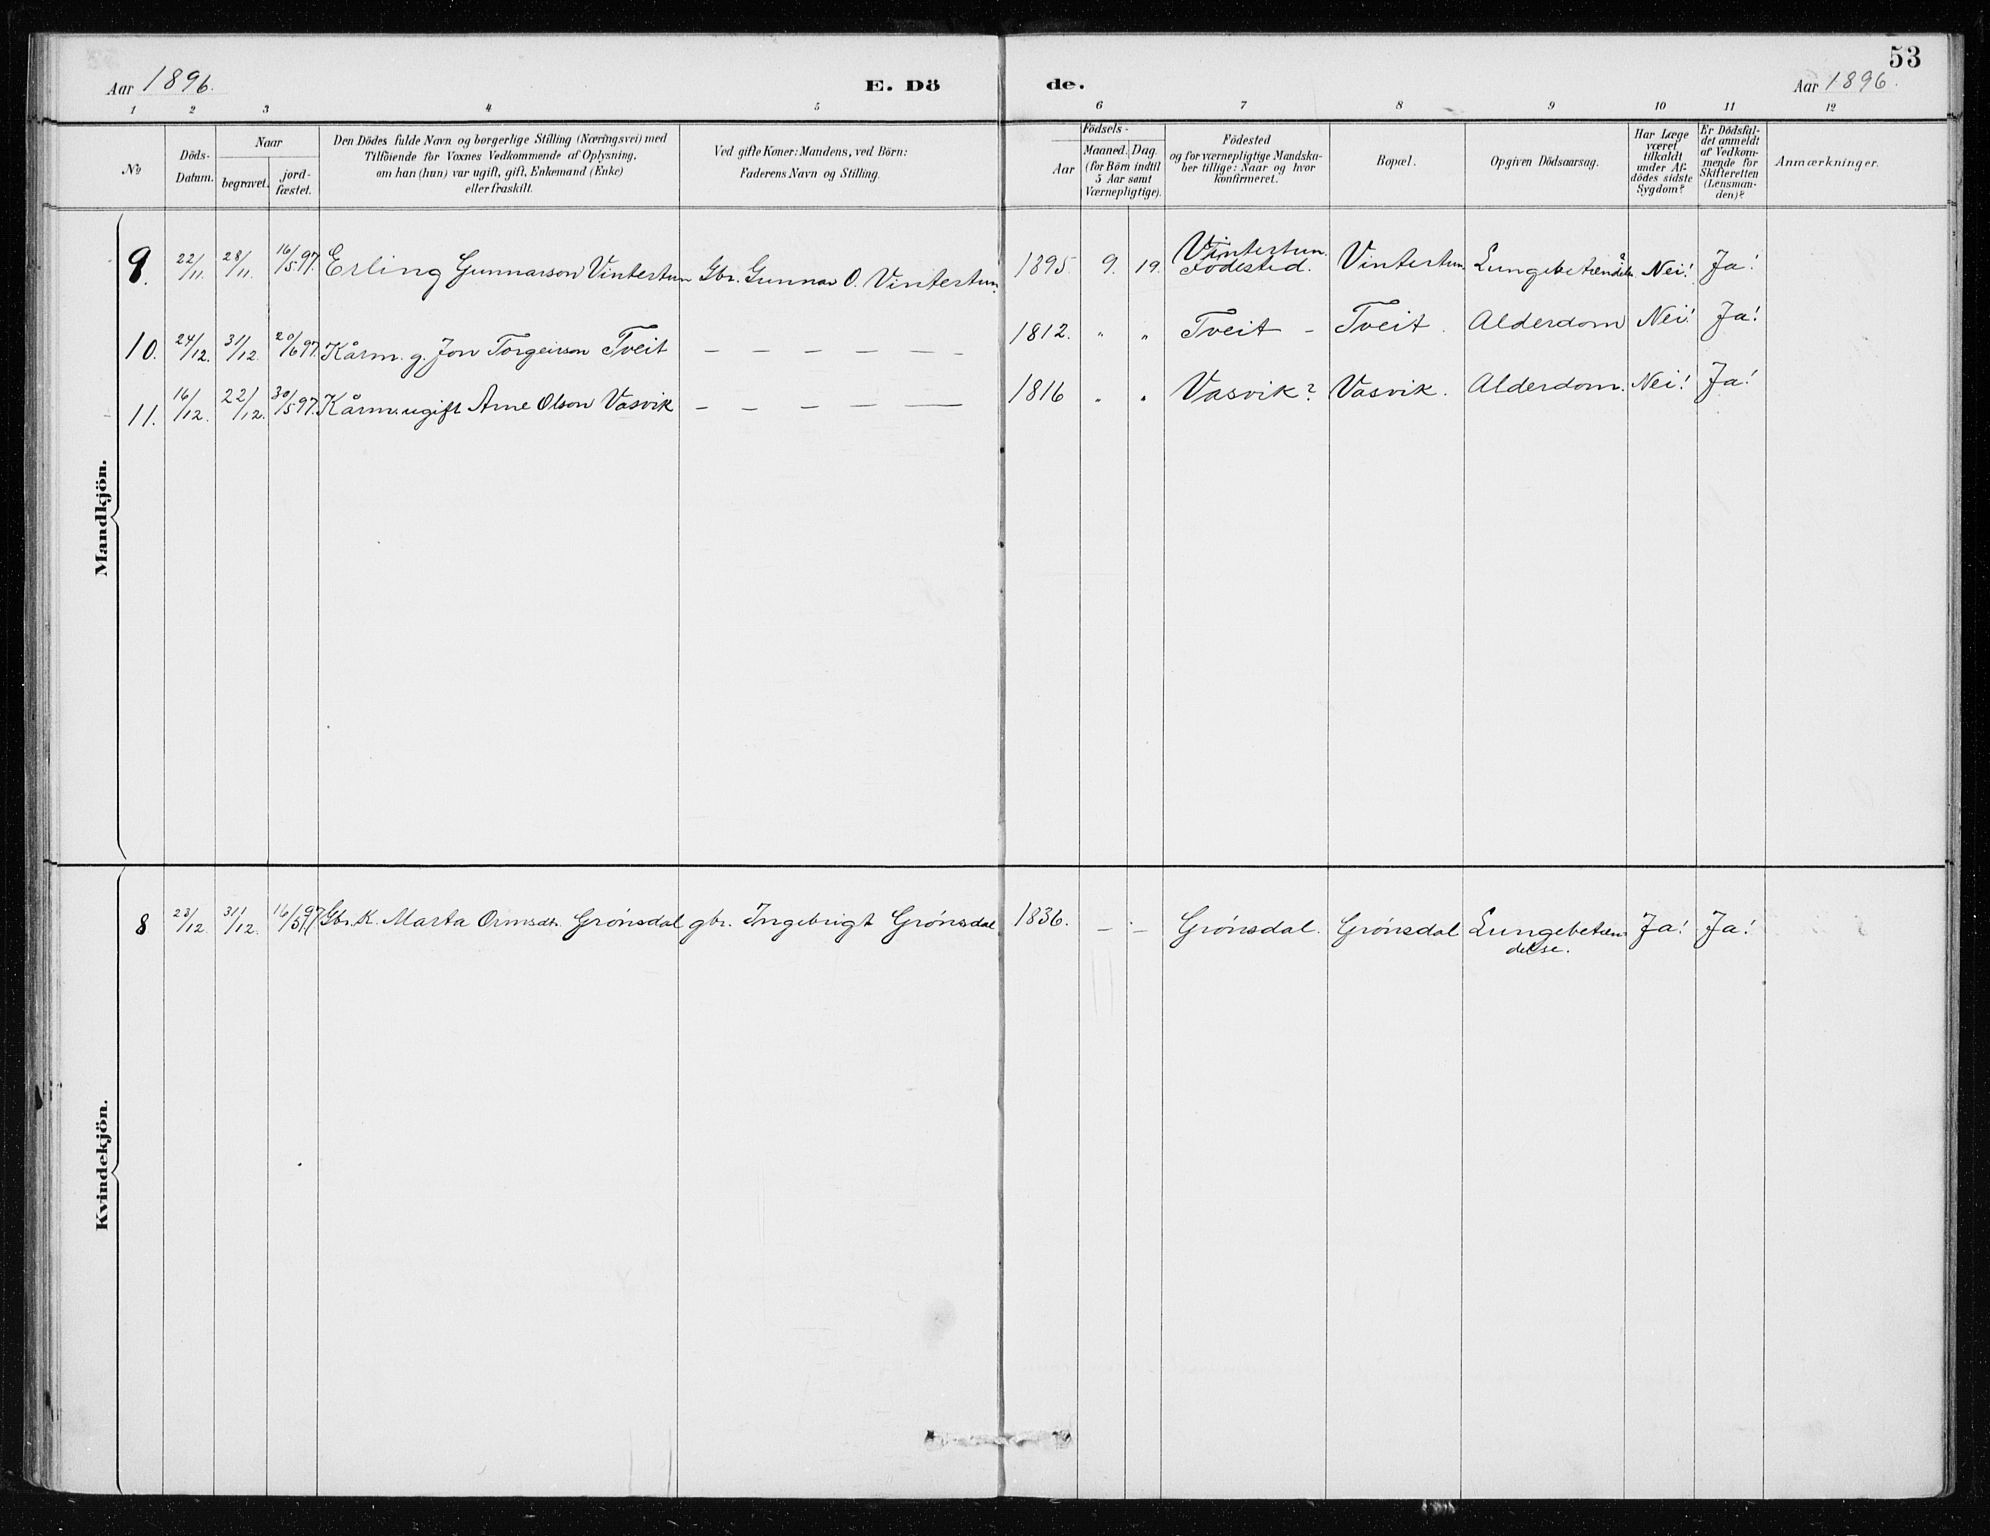 53
Aar 1896.
E. Dö
de.
Aar 1896.
1 2 3 4 5 6 7 8 9 10 11 12
No
Döds-
Datum.
Naar
begravet.
jord-
fæstet.
Den Dödes fulde Navn og borgerlige Stilling (Næringsvei) med
Tilföiende for Voxnes Vedkommende af Oplysning,
om han (hun) var ugift, gift, Enkemand (Enke)
eller fraskilt.
Ved gifte Koner: Mandens, ved Börn:
Faderens Navn og Stilling.
Födsels-
Aar
Maaned. Dag.
(for Börn indtil
5 Aar samt
Værnepligtige).
Födested
og for værnepligtige Mandska-
ber tillige: Naar og hvor
konfirmeret.
Bopæl.
Opgiven Dödsaarsag.
Har Læge
været
tilkaldt
under Af-
dödes sidste
Sygdom?
Er Dödsfal-
det anmeldt
af Vedkom-
mende for
Skifteretten
(Lensman-
den)?
Anmærkninger.
Mandkjön.
9. 22/11. 28/11. 16/5 97. Erling Gunnarson Vintertun Gbr. Gunnar O. Vintertun. 1895. 9. 19. Vintertun. Födested. Vintertun. Lungebetændelse? Nei! Ja!
10. 24/12. 31/12. 20/6 97. Kårm. g. Jon Torgeirson Tveit — — — — — — 1812. " " Tveit – Tveit. Alderdom Nei! Ja!
11. 16/12. 22/12. 30/5 97. Kårm. ugift Arne Olson Vasvik — — — — — 1816 " " Vasvik? Vasvik. Alderdom. Nei! Ja!
Kvindekjön.
8 23/12. 31/12. 16/5 97. Gbr. K. Marta Ormsdtr. Grónsdal gbr. Ingebrigt Grónsdal 1836. – – Grónsdal. Grónsdal Lungebetæn- Ja! Ja!
delse.